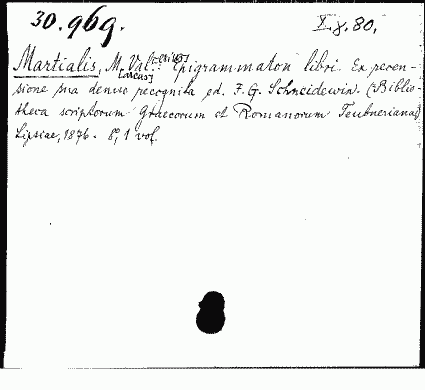 30.969. X.γ.80.
Martialis, M. Val.[erius] Epigrammaton libri. Ex recen-
sione sua denuo recognita ed. F. G. Schneidewin. (Biblio-
theca scriptorum Graecorum et Romanorum Teubneriana)
Lipsiae, 1876. 8°, 1 vol.